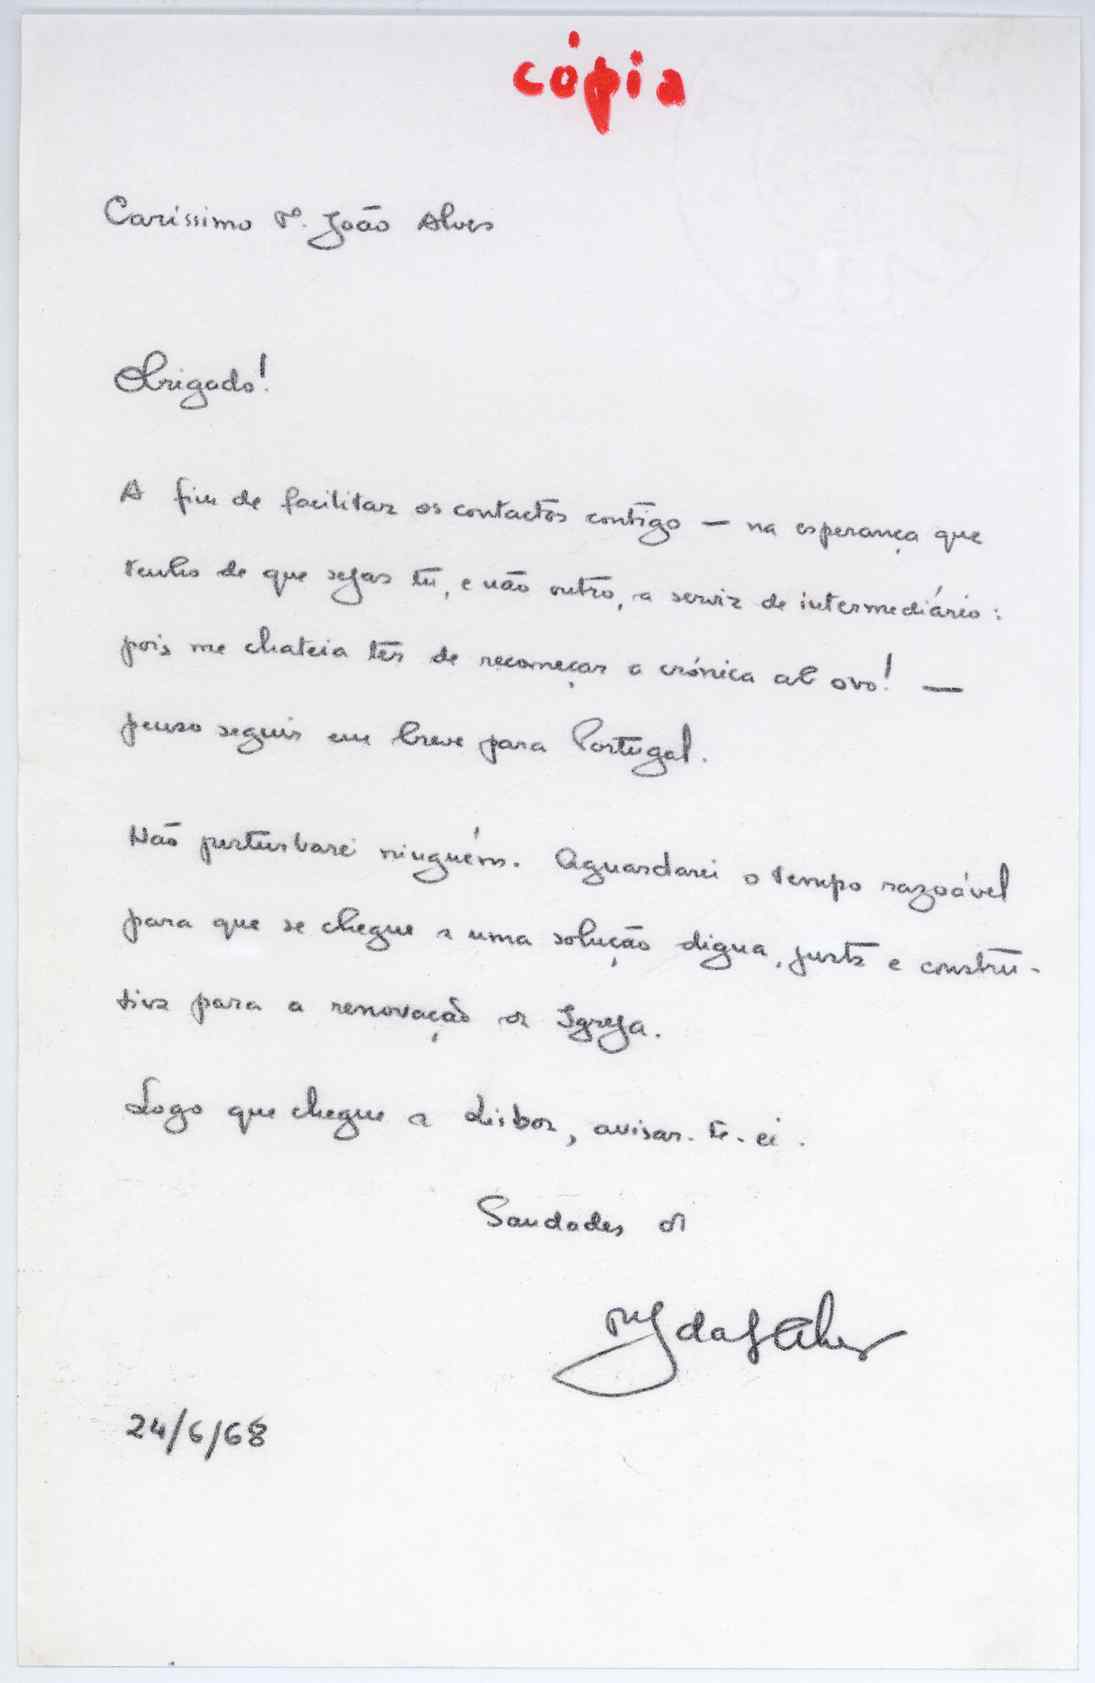 cópia
Caríssimo P.e João Alves
Obrigado!
A fim de facilitar os contactos contigo — na esperança que
tenho de que sejas tu, e não outro, a servir de intermediário:
pois me chateia ter de recomeçar a crónica ab ovo! —
penso seguir em breve para Portugal.
Não perturbarei ninguém. Aguardarei o tempo razoável
para que se chegue a uma solução digna, justa e constru-
tiva para a renovação da Igreja.
Logo que chegue a Lisboa, avisar-te-ei.
Saudades do
24/6/68